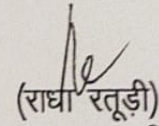 (राधा रतूड़ी)